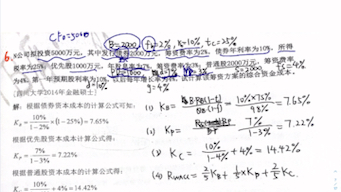 CF0=5000
B=2000 fb=2%, rb=10%, tc=25%
6. 某公司拟投资5000万元，其中发行债券2000万元，筹资费率2%，债券年利率为10%，所得
税率为25%，优先股1000万元，年股息率为7%，筹资费率3%，普通股2000万元，筹资费
率为4%，第一年预期股利率为10%，以后每年增长率4%，试计算该筹资方案的综合资金成本。
d=10% g=4% S=2000 fs=4%
2014年金融硕士）
解：根据债券资本成本的计算公式可知：
10%/1-2% ×(1-25%)=7.65%
根据优先股资本成本计算公式得：
7%/1-3% =7.22%
根据普通股资本成本的计算公式得：
10%/1-4% +4%=14.42%
(1) KB= (1-t) = 10%×75%/98% =7.65%
(2) KP= = 7%/1-3% =7.22%
(3) KC= 10%/1-4% +4% =14.42%
(4) Rwacc= 2/5 KB+ 1/5 ×KP+ 2/5 KC